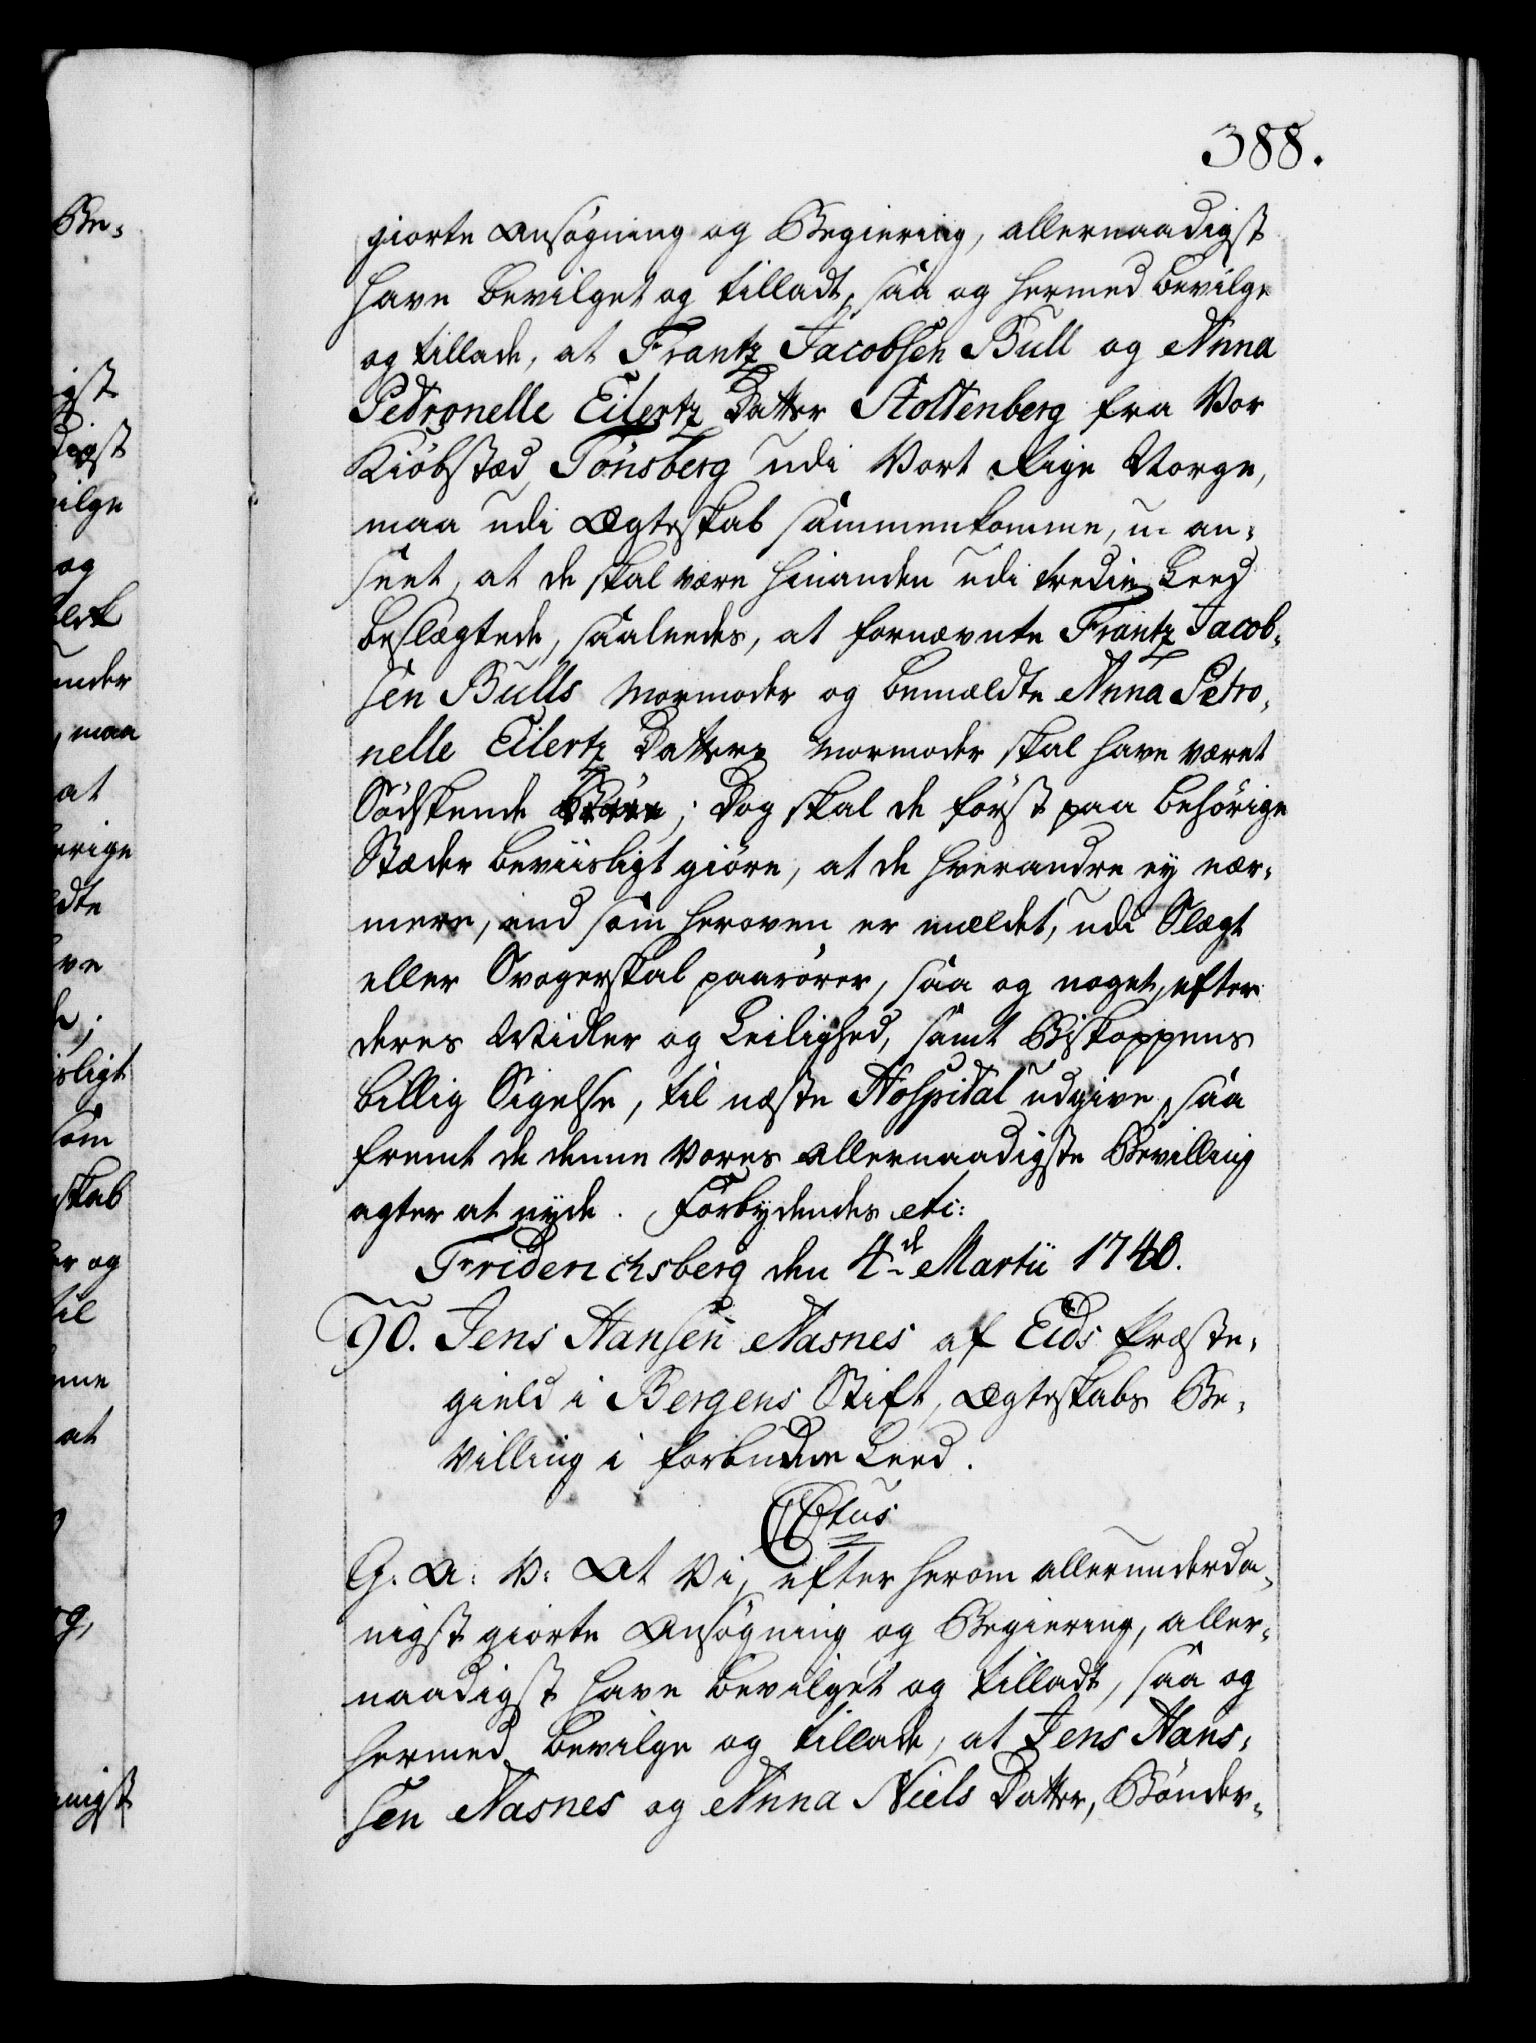 388.
giorte Ansøgning og Begiering, allernaadigst
have bevilget og tilladt, saa og hermed bevilge
og tillade, at Frantz Jacobsen Bull og Anna
Pedronelle Eilertz Datter Stoltenberg fra Vor
Kiøbstæd Tønsberg udi Vort Rige Norge,
maa udi Ægteskab sammenkomme, u-an-
seet, at de skal være hinanden udi tredie Leed
beslægtede, saaledes, at fornævnte Frantz Jacob-
sen Bulls Mormoder og bemældte Anna Petro-
nelle Eilertz Datters Mormoder skal have været
Södskende Börn; Dog skal de först paa behörige
Stæder beviisligt giöre, at de hverandre ey nær-
mere, end som heroven er mældet, udi Slægt
eller Svogerskab paarörer, saa og noget, efter
deres Midler og Leilighed, samt Biskoppens
billig Sigelse, til næste Hospital udgive, saa
fremt de denne Vores allernaadigste Bevilling
agter at nyde. Forbydendes etc:
Friderichsberg den 4de Martii 1740.
90. Jens Hansen Nasnes af Eids Præste-
gield i Bergens Stift, Ægteskabs Be-
villing i forbudne Leed.
C 6tus
G. A: V: At Vi, efter herom allerunderda-
nigst giorte Ansøgning og Begiering, aller-
naadigst have bevilget og tilladt, saa og
hermed bevilge og tillade, at Jens Hans-
sen Nasnes og Anna Niels Datter, Bønder-
Be-
igst
digst
vilge
og
under
, maa
at
örige
ldte
ave
isligt
som
skab
er og
til
nne
at
nigst